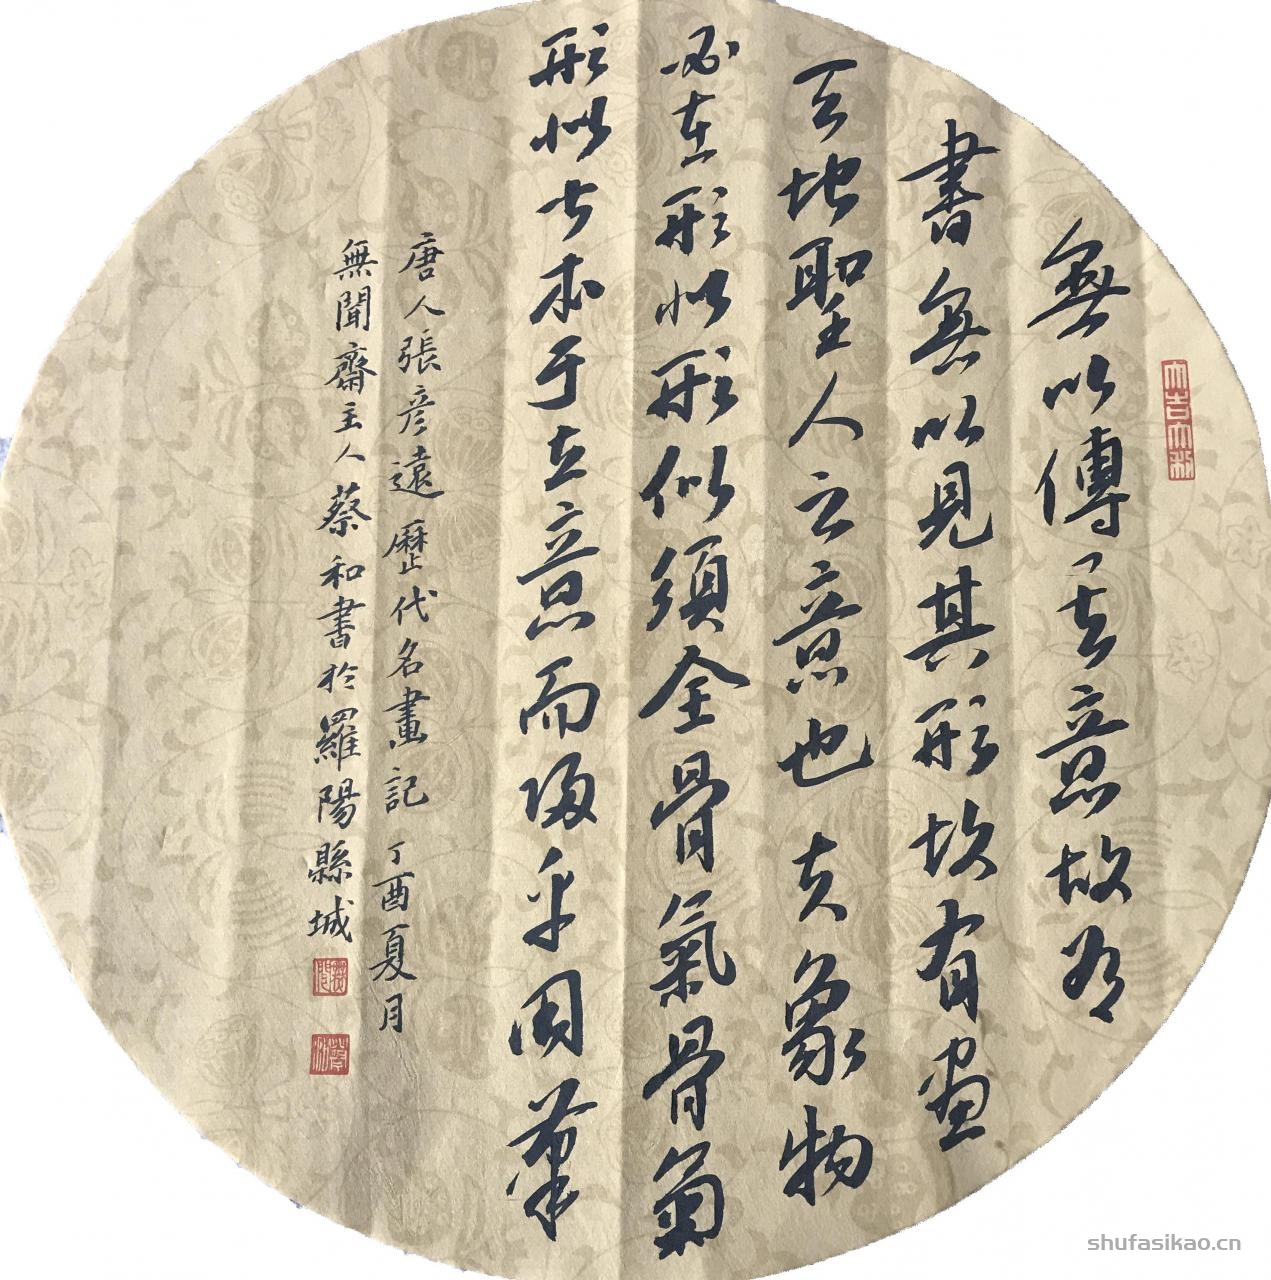 大吉大利
無以傳其意故有
書無以見其形故有畫
天地聖人之意也夫象物
必在形似形似須全骨氣骨氣
形似皆本于立意而歸乎用筆
唐人張彥遠歷代名畫記丁酉夏月
無聞齋主人蔡和書於羅陽縣城
shufasikao.cn